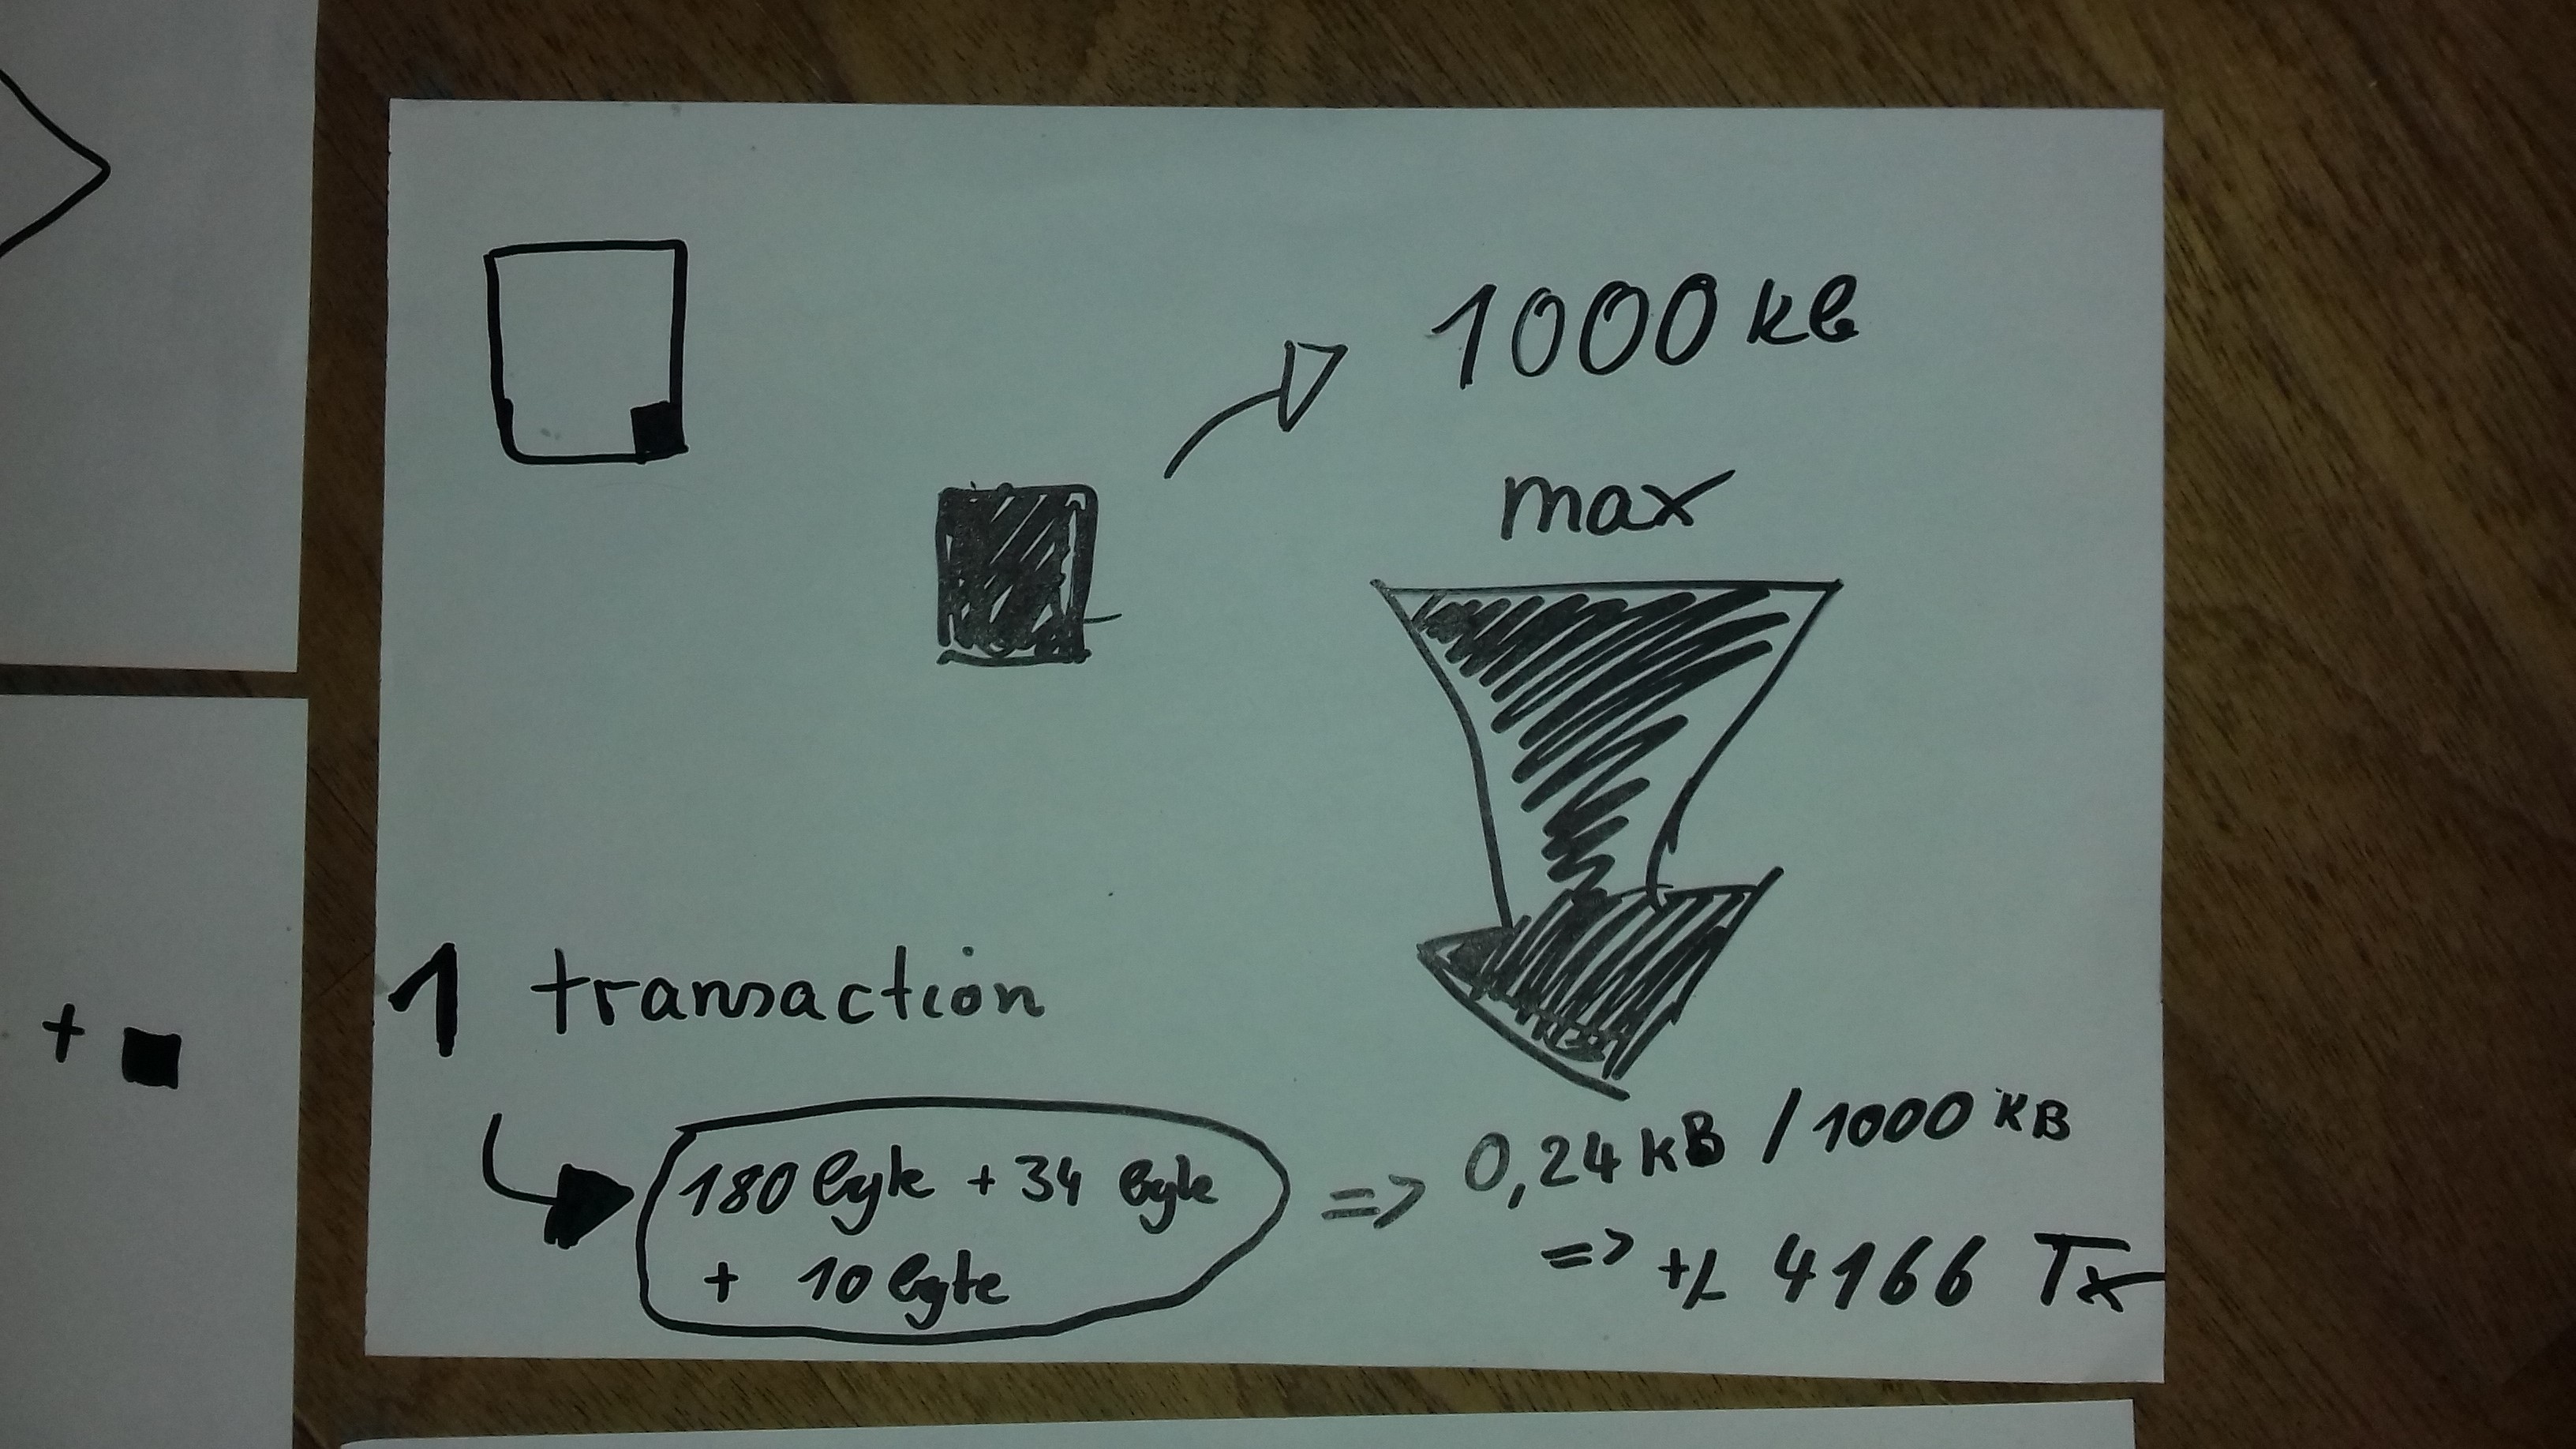 1000 KB
max
1 transaction
180 byte + 34 byte
+ 10 byte
=> 0,24 KB / 1000 KB
=> +/- 4166 Tx
+